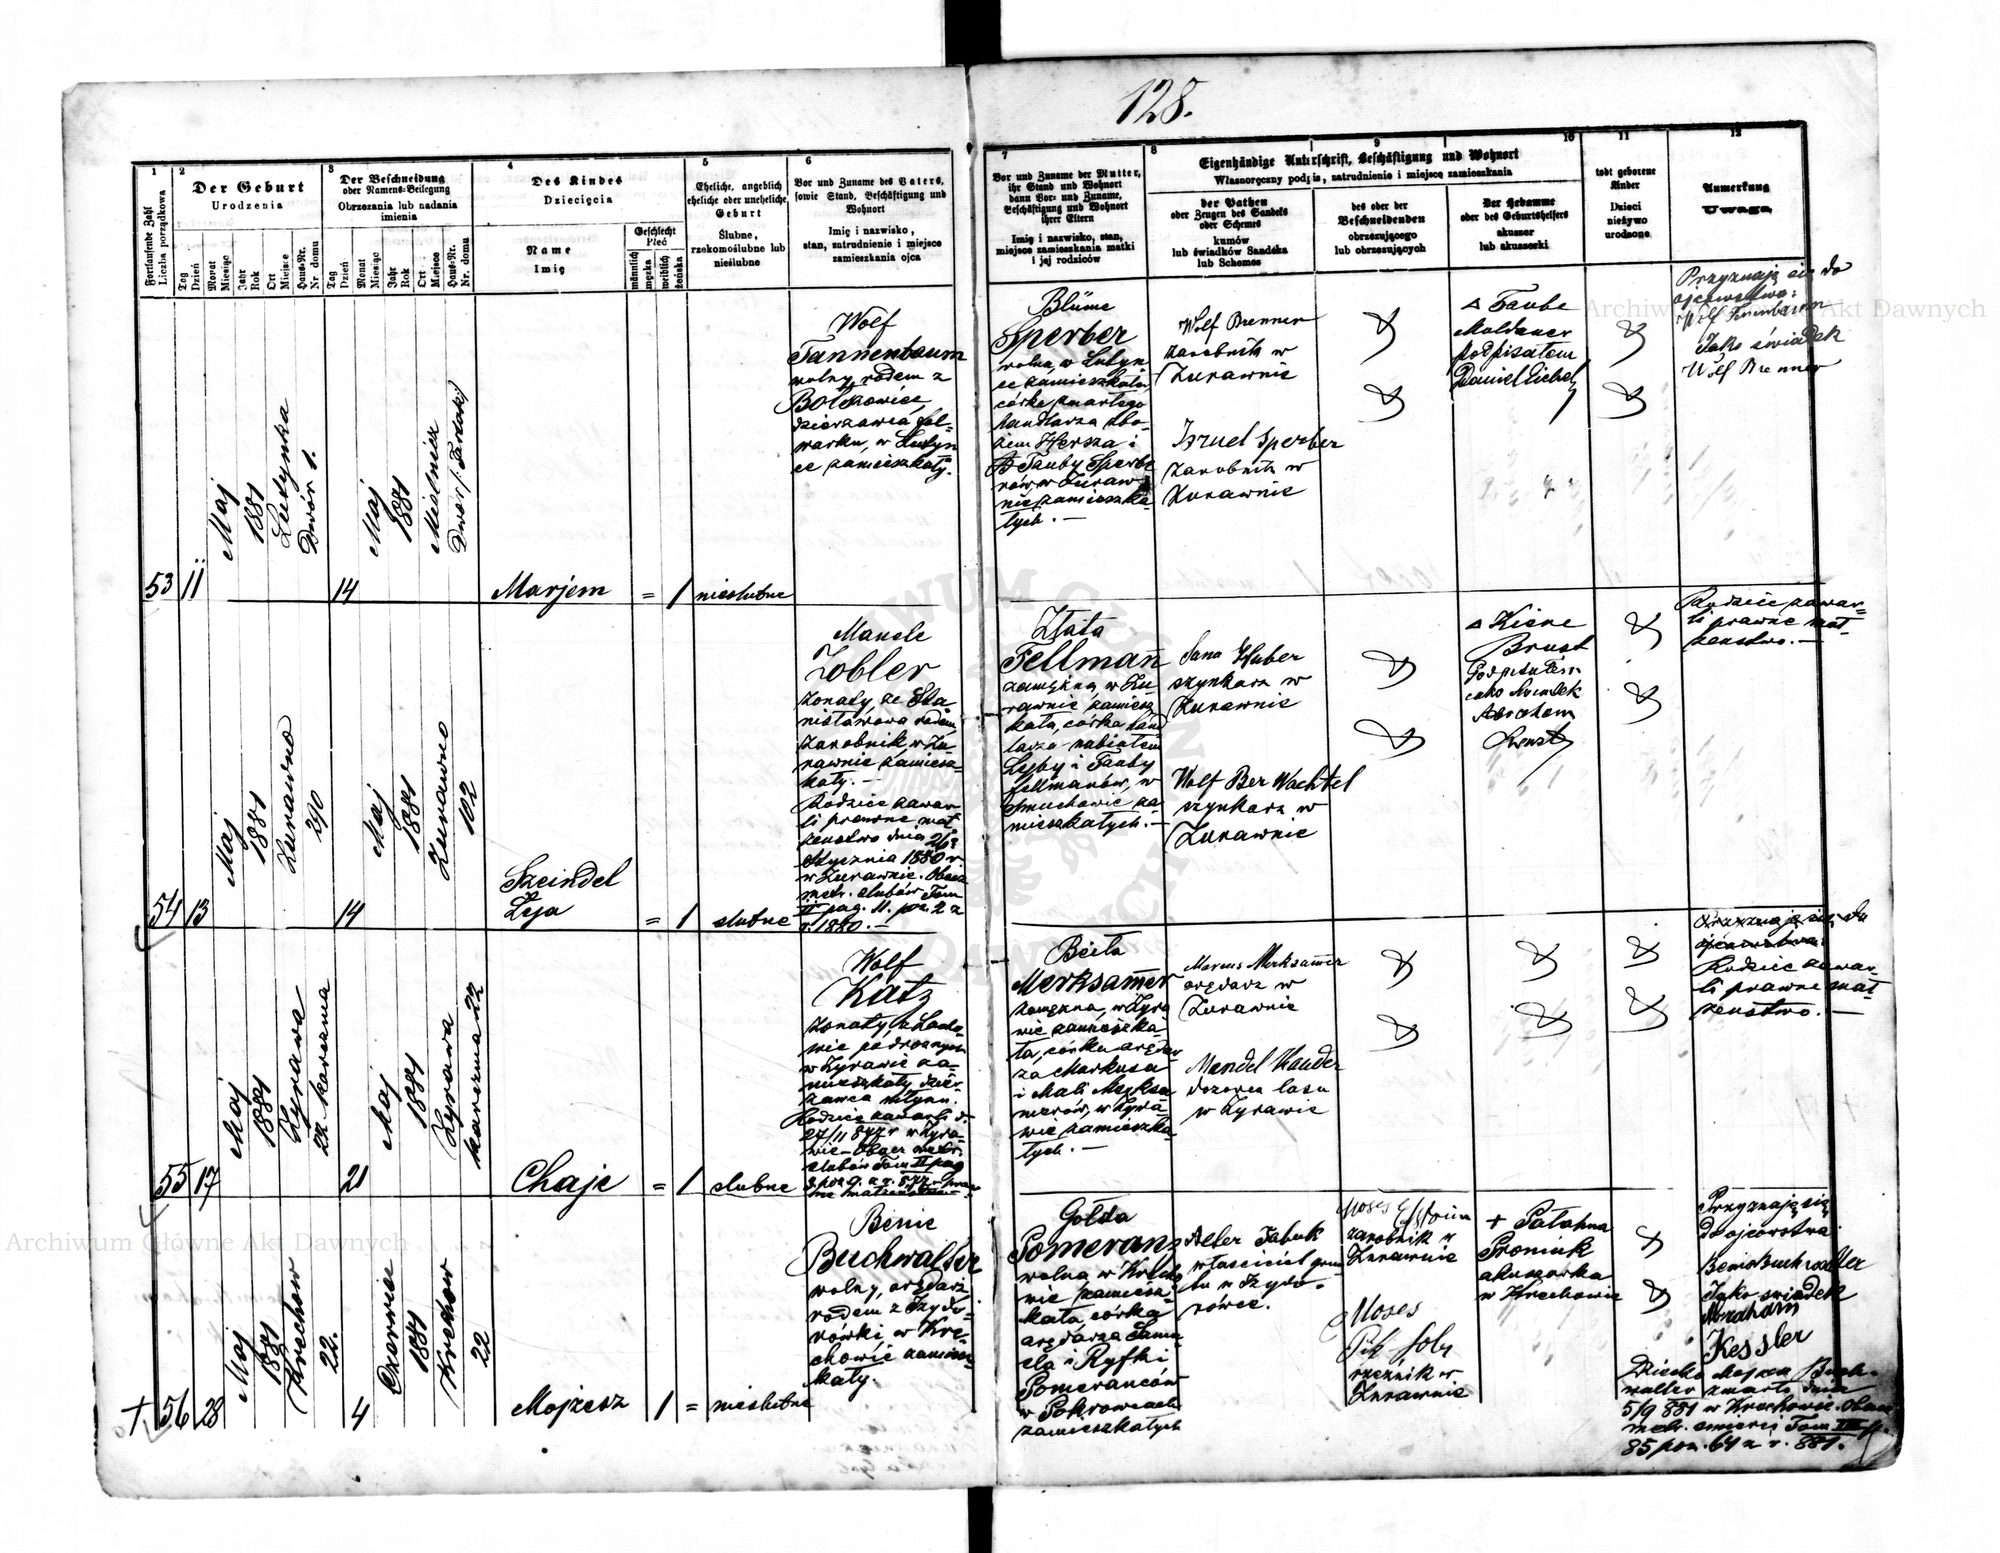 128.
1
2
Der Geburt
Urodzenia
3
Der Beschneidung
oder Namens-Beilegung
Obrzezania lub nadania
imienia
4
Des Kindes
Dziecięcia
Name
Imię
Geschlecht
Płeć
männlich
męzka
weiblich
żeńska
5
Eheliche, angeblich
eheliche oder uneheliche
Geburt
Ślubne,
rzekomoślubne lub
nieślubne
6
Vor und Zuname des Vaters,
sowie Stand, Beschäftigung und
Wohnort
Imię i nazwisko,
stan, zatrudnienie i miejsce
zamieszkania ojca
7
Vor und Zuname der Mutter,
ihr Stand und Wohnort
dann Vor- und Zuname,
Beschäftigung und Wohnort
ihrer Eltern
Imię i nazwisko, stan,
miejsce zamieszkania matki
i jej rodziców
8
9
10
Eigenhändige Unterschrift, Beschäftigung und Wohnort
Własnoręczny podpis, zatrudnienie i miejsce zamieszkania
der Pathen
oder Zeugen des Sandeks
oder Schemes
kumów
lub świadków Sandeka
lub Schemes
des oder der
Beschneidenden
obrzezującego
lub obrzezujących
der Hebamme
oder des Geburtshelfers
akuszer
lub akuszerki
11
todt geborene
Kinder
Dzieci
nieżywo
urodzone
12
Anmerkung
Uwaga
Fortlaufende Zahl
Liczba porządkowa
Tag
Dzień
Monat
Miesiąc
Jahr
Rok
Ort
Miejsce
Haus-Nr.
Nr. domu
Tag
Dzień
Monat
Miesiąc
Jahr
Rok
Ort
Miejsce
Haus-Nr.
Nr. domu
53
11
Maj
1881
Lutynka
Dwór 1.
14
Maj
1881
Marjem
= 1
nieslubne
Wolf
Tannenbaum
wolny, rodem z
dzierzawca fol-
warku, w Lutyn
ce zamieszkały.
Blüme
Sperber
wolna, w Lutyn
ce zamieszkała,
córka zmarłego
handlarza zbo-
żem Hersza i
Tauby Sperbe
rów w Żuraw
nie zamieszka
łych. —
Wolf Brenner
zarobnik w
Żurawnie
Izrael Sperber
zarobnik w
Żurawnie
Taube
Moldauer
podpisałem
Przyznaję się do
ojcowstwa:
Wolf Tannenbaum
Jako świadek
Wolf Brenner
54
13
Maj
1881
Żurawno
290
14
Maj
1881
Żurawno
102
Szeindel
Leja
= 1
slubne
Manele
Zobler
żonaty, ze Sta-
nisławowa rodem,
zarobnik, w Żu-
rawnie zamiesz-
kały. —
Rodzice zawar-
li prawne mał
żenstwo dnia 26
Stycznia 1880 r.
w Żurawnie. Obacz
metr. slubów Tom
II pag. 11. poz. 2 z
r. 1880. —
Złata
Fellmañ
zamężna, w Żu-
rawnie zamiesz
kała, córka hand
larza nabiałem
Lejby i Tauby
Fellmanów, w
zamieszkałych. —
Sana Huber
szynkarz w
Żurawnie
Wolf Ber Wachtel
szynkarz w
Żurawnie
Kiene
Brust
Podpisałem
jako świadek
Abraham
Rodzice zawar-
li prawne mał-
żenstwo. —
55
17
Maj
1881
Żyrawa
22 karczma
21
Maj
1881
Żyrawa
karczma 22
Chaje
= 1
slubne
Wolf
Katz
żonaty,
w Żyrawie za-
mieszkały dzier-
żawca młynu.
Rodzice zawarli d.
27/11 877 r. w Żyra-
wie – Obacz metr.
slubów Tom II pag
Beila
Merksam̄er
zamężna, w Żyra
wie zamieszka-
ła, córka arędar
za Markusa
i Mali Merksa-
merów, w Żyra-
wie zamieszka-
łych. —
Marcus Merksam̄er
arędarz w
Żurawnie
Mendel Kauder
dozorca lasu
w Żyrawie
Przyznaję się do
ojcowstwa:
Rodzice zawar-
li prawne mał
żenstwo. —
56
28
Maj
1881
Krechow
22.
4
Czerwiec
1881
Krechow
22
Mojżesz
1 =
nieslubne
Benie
Buchwalter
wolny, arędarz,
rodem z Izydo-
rówki, w Kre-
chowie zamiesz-
kały.
Gołda
Pomeranz
wolna, w Krecho
wie zamiesz-
kała, córka
arędarza Samu-
ela i Ryfki
Pomeranców
w Pokrowcach
zamieszkałych
właściciel grun-
tu w Izydo-
rówce.
Moses
zarobnik w
Żurawnie
Moses
rzeźnik w
Żurawnie
+ Pałahna
Proniuk
akuszerka
w Krechowie
Przyznaję się
do ojcowstwa
Benie Buchwalter
Jako swiadek
Abraham
Kessler
Dziecko Mojżesz Buch-
walter zmarło dnia
5/9 881 w Krechowie. Obacz
metr. smierci Tom III p.
85 poz. 64 z r. 881.
Archiwum Główne Akt Dawnych
Archiwum Główne Akt Dawnych